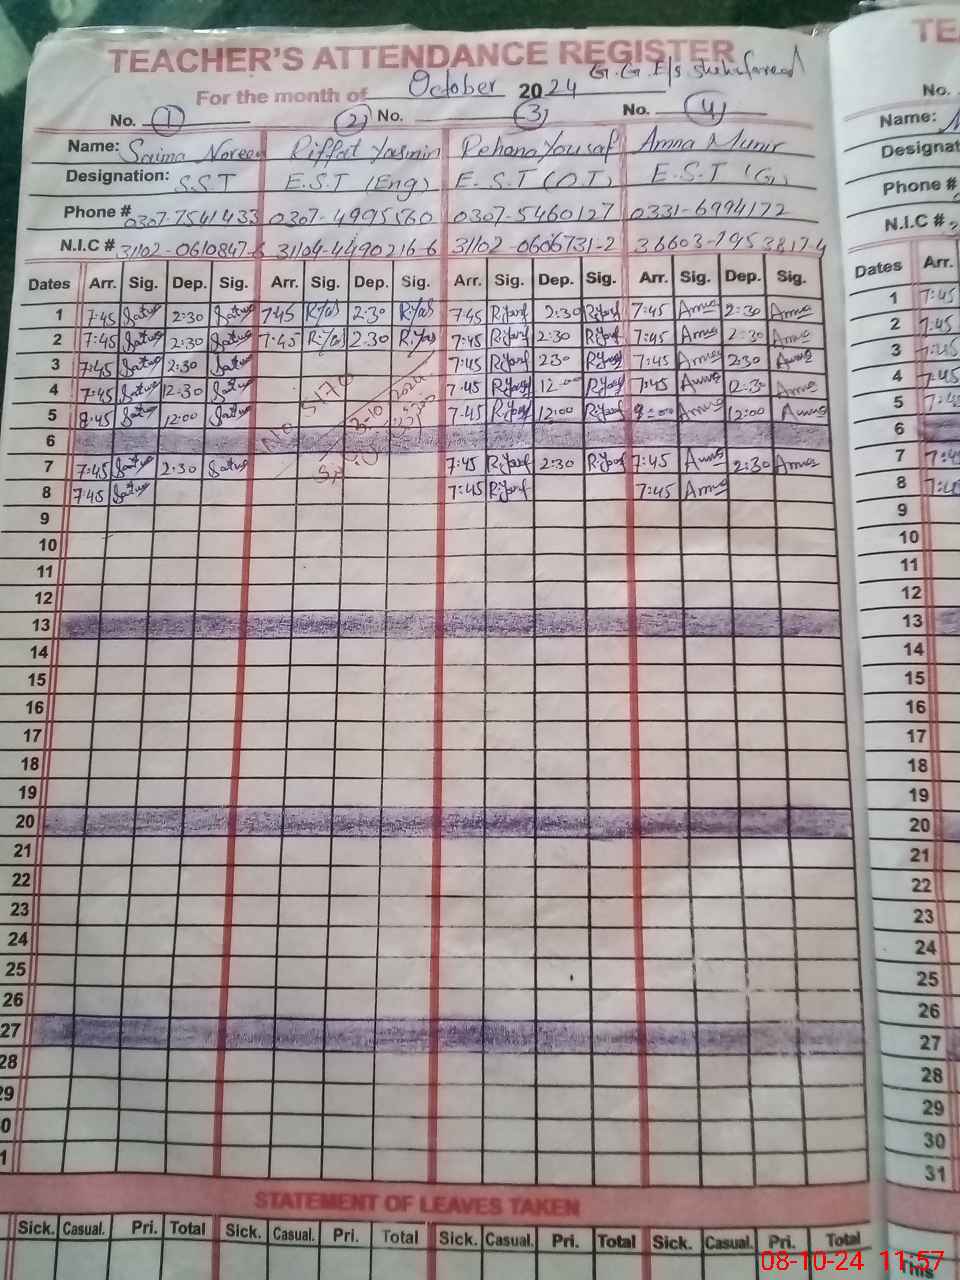 TEACHER'S ATTENDANCE REGISTER
For the month of October 2024
No. 1 2 No. 3 No. 4
Name: Saima Noreen Riffat Yasmin Rehana Yousaf Amna Munir
Designation: S.S.T E.S.T (Eng) E.S.T (O.T) E.S.T (G)
Phone # 0307-7541433 0307-4995560 0307-5460127 0331-6994172
N.I.C # 31102-0610847-6 31104-4490216-6 31102-0606731-2
Dates Arr. Sig. Dep. Sig. Arr. Sig. Dep. Sig. Arr. Sig. Dep. Sig. Arr. Sig. Dep. Sig.
1 7:45 2:30 7:45 R.Yas 2:30 R.Yas 7:45 R.Yousf 2:30 R.Yousf 7:45 Amna 2:30 Amna
2 7:45 2:30 7:45 R.Yas 2:30 R.Yas 7:45 R.Yousf 2:30 R.Yousf 7:45 Amna 2:30 Amna
3 7:45 2:30 7:45 R.Yousf 2:30 R.Yousf 7:45 Amna 2:30 Amna
4 7:45 12:30 7:45 R.Yousf 12:00 R.Yousf 7:45 Amna 12:30 Amna
5 8:45 12:00 7:45 R.Yousf 12:00 R.Yousf 9:00 Amna 12:00 Amna
No 5170
6
7 7:45 2:30 7:45 R.Yousf 2:30 R.Yousf 7:45 Amna 2:30 Amna
8 7:45 7:45 R.Yousf 7:45 Amna
9
10
11
12
13
14
15
16
17
18
19
20
21
22
23
24
25
26
27
28
29
STATEMENT OF LEAVES TAKEN
Sick. Casual. Pri. Total Sick. Casual. Pri. Total Sick. Casual. Pri. Total Sick. Casual. Pri. Total
No.
Name:
Phone #
N.I.C #
Dates Arr.
1 7:45
2 7:45
3 7:45
4 7:45
5
6
7
8
9
10
11
12
13
14
15
16
17
18
19
20
21
22
23
24
25
26
27
28
29
30
31
This
08-10-24 11:57